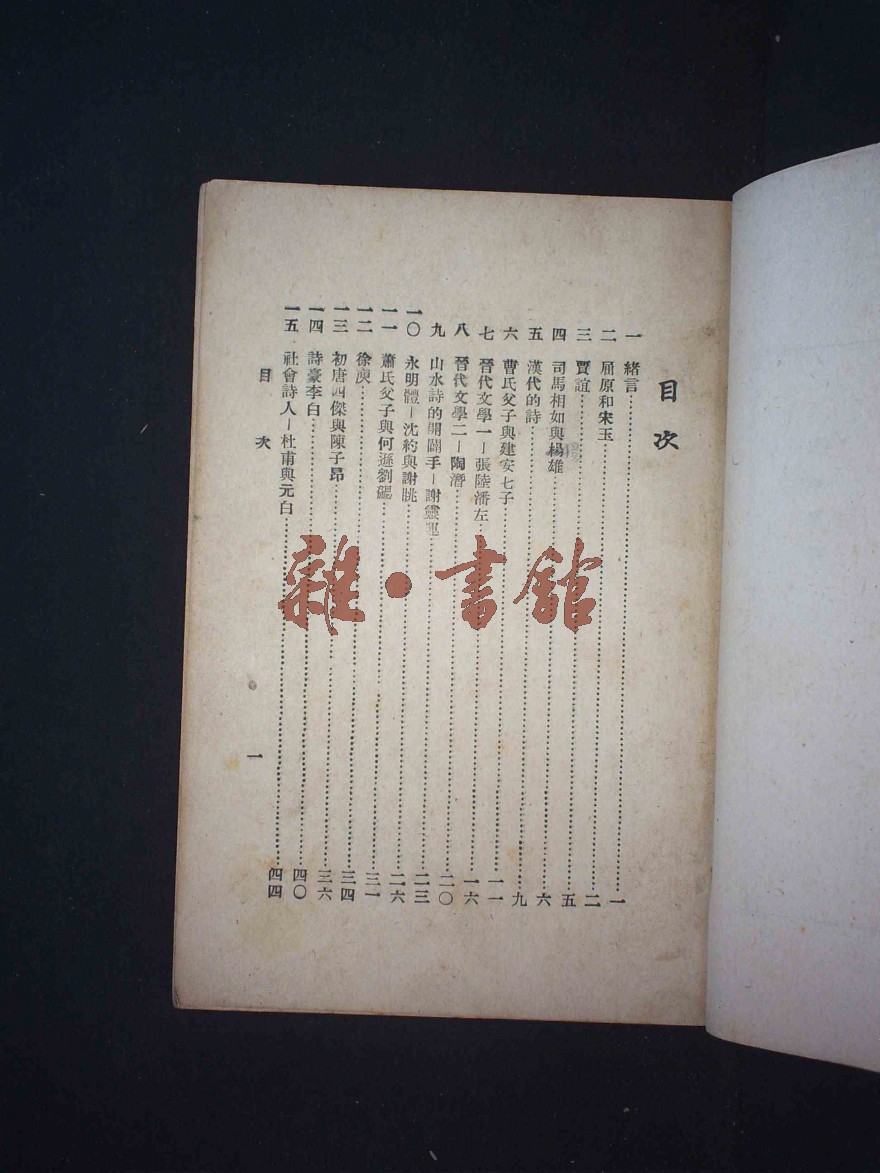 目次
一 緒言 一
二 屈原和宋玉 二
三 賈誼 五
四 司馬相如與楊雄 六
五 漢代的詩 九
六 曹氏父子與建安七子 一一
七 晉代文學一—張陸潘左 一六
八 晉代文學二—陶潛 二〇
九 山水詩的開闢手—謝靈運 二三
一〇 永明體—沈約與謝朓 二六
一一 蕭氏父子與何遜劉勰 三一
一二 徐庾 三四
一三 初唐四傑與陳子昂 三六
一四 詩豪李白 四〇
一五 社會詩人—杜甫與元白 四四
目次
一
雜·書館